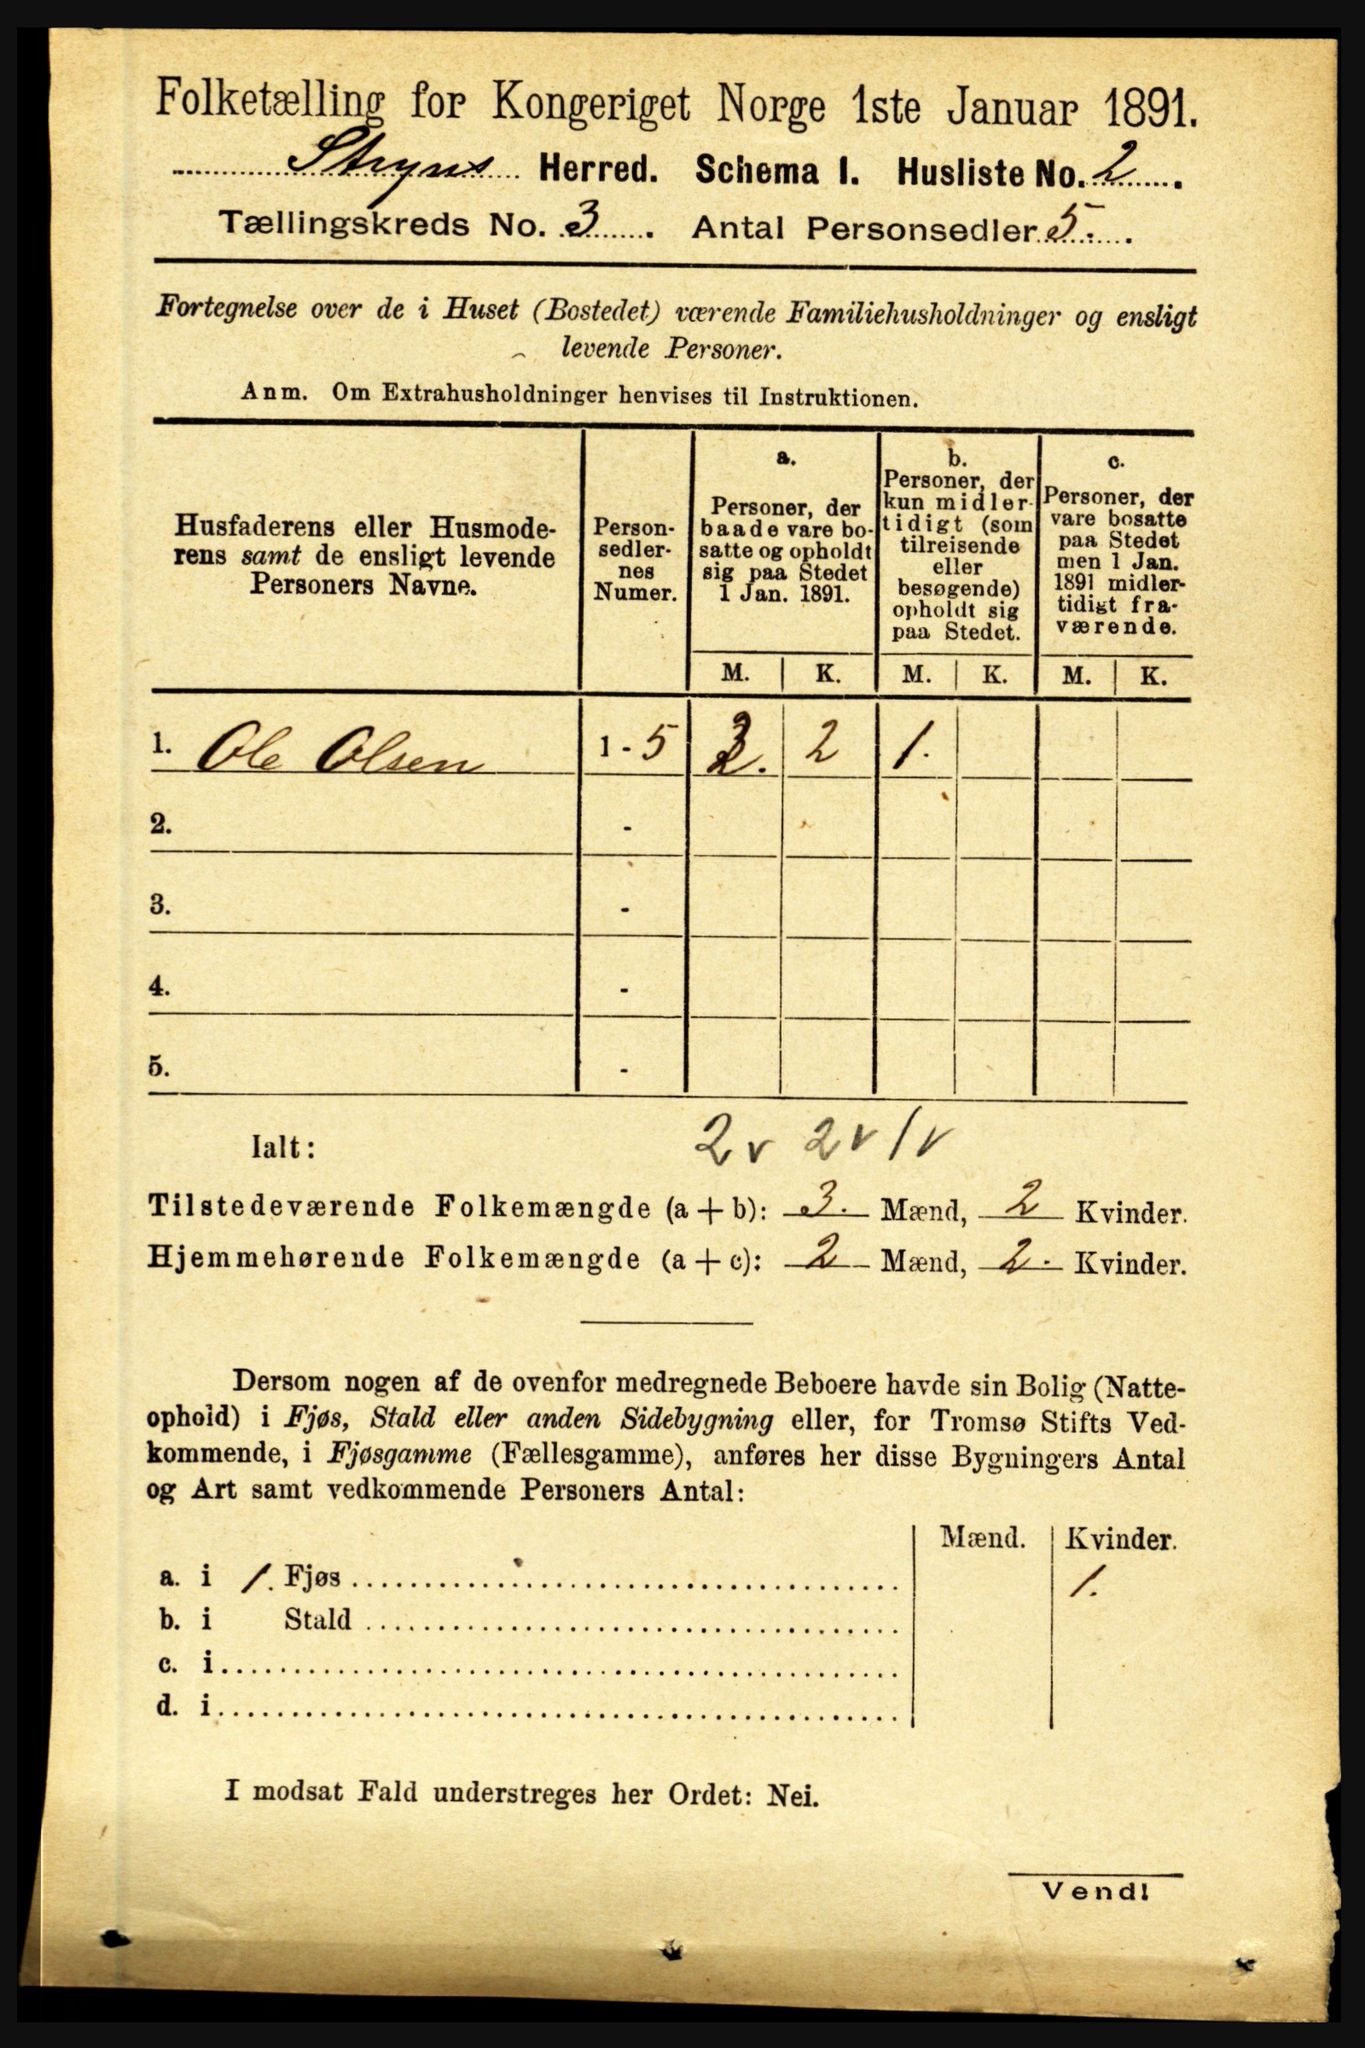 Folketælling for Kongeriget Norge 1ste Januar 1891.
Stryns Herred. Schema I. Husliste No. 2.
Tællingskreds No. 3. Antal Personsedler 5.
Fortegnelse over de i Huset (Bostedet) værende Familiehusholdninger og ensligt
levende Personer.
Anm. Om Extrahusholdninger henvises til Instruktionen.
Husfaderens eller Husmode-
rens samt de ensligt levende
Personers Navne.
Person-
sedler-
nes
Numer.
a.
Personer, der
baade vare bo-
satte og opholdt
sig paa Stedet
1 Jan. 1891.
b.
Personer, der
kun midler-
tidigt (som
tilreisende
eller
besøgende)
opholdt sig
paa Stedet.
c.
Personer, der
vare bosatte
paa Stedet
men 1 Jan.
1891 midler-
tidigt fra-
værende.
M. K. M. K. M. K.
1. Ole Olsen 1 - 5 2. 2 1.
2. -
3. -
4. -
5. -
Ialt: 2 v 2 v 1 v
Tilstedeværende Folkemængde (a + b): 3. Mænd, 2 Kvinder.
Hjemmehørende Folkemængde (a + c): 2 Mænd, 2. Kvinder.
Dersom nogen af de ovenfor medregnede Beboere havde sin Bolig (Natte-
ophold) i Fjøs, Stald eller anden Sidebygning eller, for Tromsø Stifts Ved-
kommende, i Fjøsgamme (Fællesgamme), anføres her disse Bygningers Antal
og Art samt vedkommende Personers Antal:
Mænd. Kvinder.
a. i 1. Fjøs 1.
b. i Stald
c. i
d. i
I modsat Fald understreges her Ordet: Nei.
Vend!